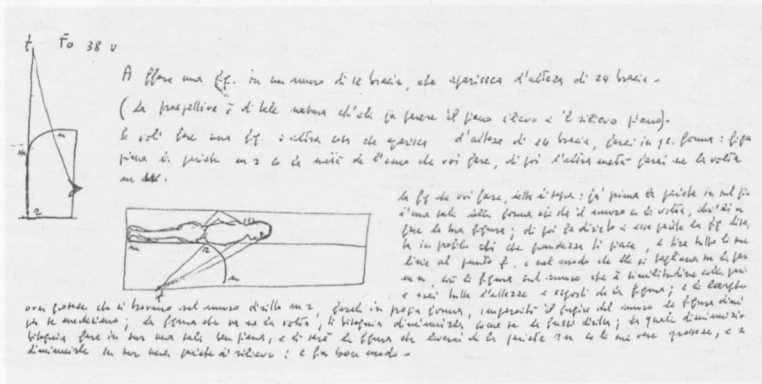 t Fo 38 v
A ffare una fig. in un muro di 12 bracia, che aparissca d'alteza di 24 bracia.
(La prospettiva è di tale natura ch'ella fa parere il piano rilievo e 'l rilievo piano).
Se voli fare una fig. o altra cosa che aparissa d'alteza di 24 bracia, farai in qs. forma: figu
prima la pariete m r co la metà de l'omo che voi fare, di poi l'altra metà farai ne la volta
m n.
m n
r
la fig che voi fare, della di sopra: fa' prima la pariete in sul
d'una sala della forma che è il muro co la volta, dov'ài a
fare la tua figura; di poi fa dirieto a essa pariete la fig. dise
ta in profilo di che grandeza ti piace, e tira tutte le sue
linie al punto f. e nel modo ch'elle si tagliano ne la par
m n, così la figura sul muro che à similitudine colla pari
e arai tutte l'alteze e sporti de la figura; e le largeze
m r n
f
over grosseze che si trovano nel muro diritto m r, farale in propia forma, imperochè 'l fugire del muro la figura dimi
per se medesimo; la figura che va ne la volta, ti bisognia diminuirla come se la fussi diritta; la quale diminuizio
bisognia fare in sur una sala ben piana, e lì sarà la figura che leverai da la pariete r n co le sue vere grosseze, e
diminuirle in sur una pariete di rilievo: e fia bon modo.